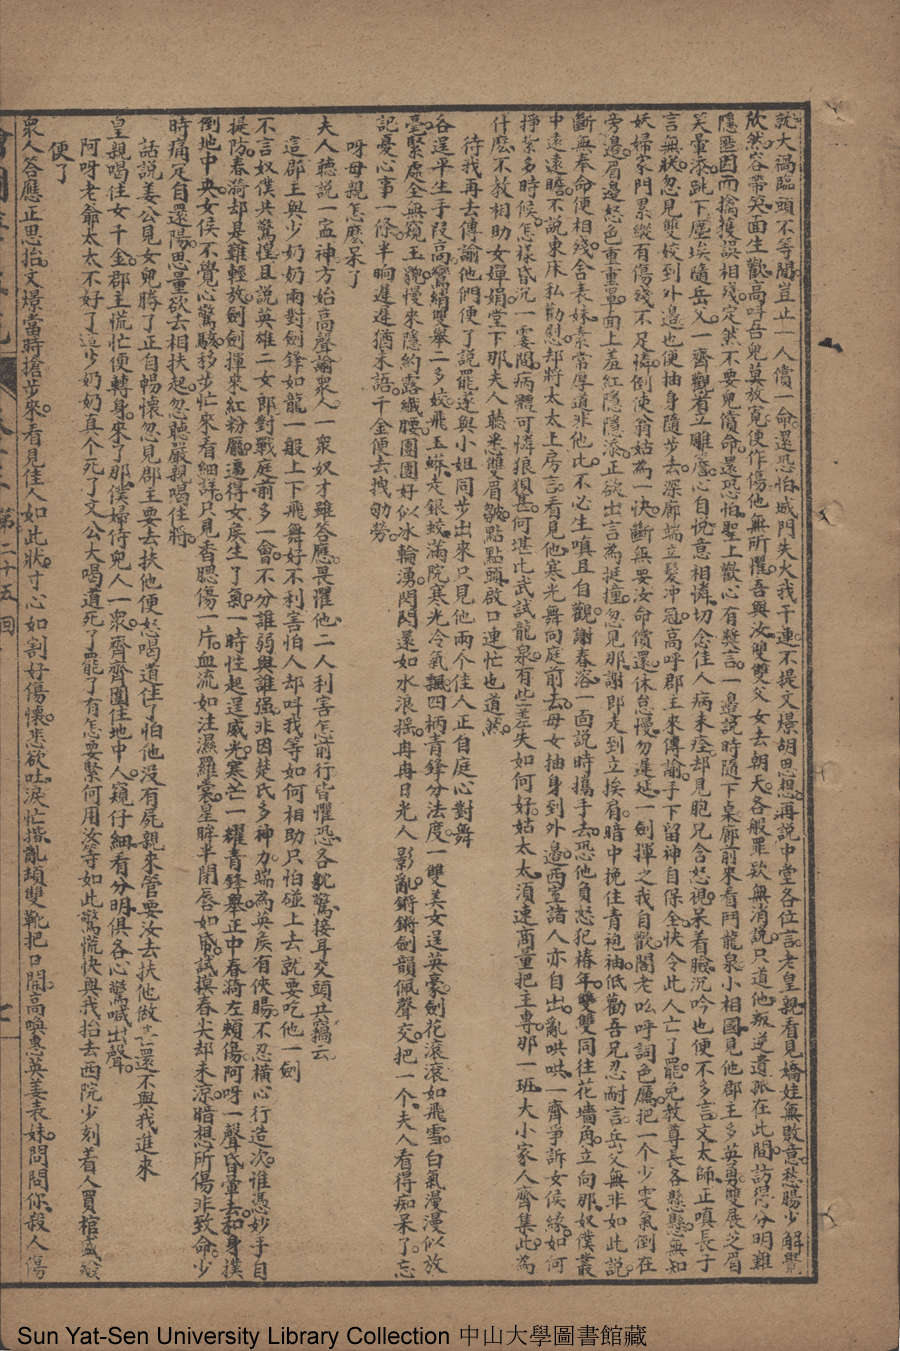 就大禍臨頭不等閒豈止一人償一命還恐怕城門失火我干連不提文㬌胡思想再說中堂各位言老皇親看見嬌娃無敗意愁腸少解覺
欣然容帶笑面生歡高呼吾兒莫放寬便作傷他無所懼吾與汝雙雙父女去朝天各般罪欵無消說只道他叛逆遺孤在此間訪得分明難
隱匿因而擒獲誤相殘定然不要兒償命還恐怕聖上歡心有獎言一邊說時隨下桌廊前來看鬥龍泉小相國見他郡主多英勇雙展芝眉
笑暈添跳下塵埃隨岳父一齊觀看立雕簷心自悅意相憐切念佳人病未痊却見胞兄含怒視呆看臉沉吟也便不多言文太師正嗔長子
言無狀忽見雙姣到外邊也便抽身隨步去深廊端立髮冲冠高呼郡主來傳諭手下留神自保全快令此人亡了罷免教尊長各懸懸無知
妖婦家門累縱有傷殘不足憐倒使翁姑為一快斷無要汝命償還休怠慢勿遲延一劍揮之我自歡閣老吆呼詞色厲把一个少雯氣倒在
旁邊眉邊怒色重重罩面上羞紅隱隱添正欲出言為挺撞忽見那謝郎走到立挨肩暗中挽住青袍袖低勸吾兄忍耐言岳父無非如此說
斷無奉命便相殘舍表妹素常厚道非他比不必生嗔且自觀謝春溶一面說時攜手去恐他負怒犯椿年雙雙同往花墻角立向那奴僕叢
中遠遠瞻不說東床私勸慰却將太太上房言看見他寒光舞向庭前去母女抽身到外邊西室諸人亦自出亂哄哄一齊爭訴女侯緣如何
掙紥多時候怎樣昏沉一霎間病體可憐狼狽甚何堪比武試龍泉有些差失如何好姑太太須速商量把主專那一班大小家人齊集此為
什麽不救相助女嬋娟堂下那夫人聽來雙眉皺點點頭啟口連忙也道然
待我再去傳諭他們便了說罷遂與小姐同步出來只見他兩个佳人正自庭心對舞
各逞平生手段高鸞綃雙舉二多姣飛玉蟒走銀蛟滿院寒光冷氣飄四柄青鋒分法度一雙美女逞英豪劍花滾滾如飛雪白氣漫漫似放
毫緊處全無窺玉貌慢來隱約露纖腰團團好似冰輪湧閃閃還如水浪摇冉冉日光人影亂鏘鏘劍韻佩聲交把一个夫人看得痴呆了忘
記憂心事一條半晌遲遲猶未語千金便去拽劬勞
呀母親怎麽呆了
夫人聽說一盂神方始高聲諭眾人一衆奴才雖答應畏懼他二人利害怎前行皆懼恐各躭驚接耳交頭共竊云
這郡主與少奶奶兩對劍鋒如龍一般上下飛舞好不利害怕人却呌我等如何相助只怕碰上去就要吃他一劍
不言奴僕共驚惶且說英雄二女郎對戰庭前多一會不分誰弱與誰强非因楚氏多神力端為英侯有俠腸不忍橫心行造次誰憑妙手自
提防春漪却是難輕放劍劍揮來紅粉厲逼得女侯生了氣一時性起逞威光寒芒一耀青鋒舉正中春漪左頰傷阿呀一聲昏暈去和身撲
倒地中央女侯不覺心驚駭移步忙來看細詳只見香腮傷一片血流如注濕羅裳星眸半閉唇如昏試摸春尖却未凉暗想所傷非致命少
時痛定自還陽思量欲去相扶起忽聽嚴親喝住將
話說姜公見女兒勝了正自暢懷忽見郡主要去扶他便怒喝道住了怕他沒有屍親來管要汝去扶他做甚還不與我進來
皇親喝住女千金郡主慌忙便轉身來了那僕婦侍兒人一衆齊齊圍住地中人窺仔細看分明俱各心驚喊出聲
阿呀老爺太太不好了這少奶奶真个死了文公大喝道死了罷了有怎要緊何用汝等如此驚慌快與我抬去西院少刻着人買棺盛殮
便了
衆人答應正思抬文㬌當時搶步來看見佳人如此狀寸心如割好傷懷悲欲吐淚忙揩亂頓雙靴把口開高喚惠英姜表妹問問你殺人傷
第二十五回
七
Sun Yat-Sen University Library Collection 中山大學圖書館藏